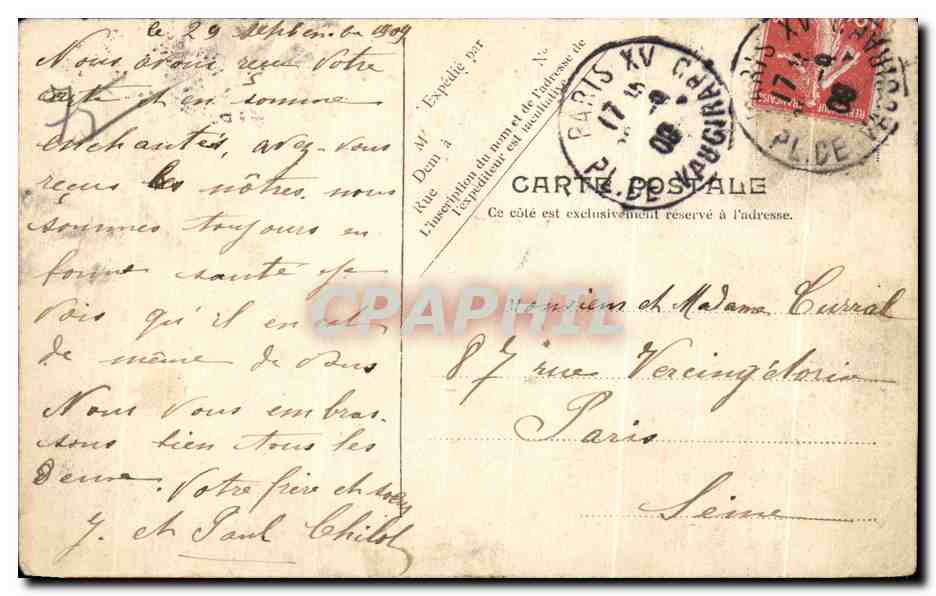 le 29 septembre 1909
Nous avons reçu votre
carte et en somme
enchantés, avez-vous
reçus les nôtres, nous
sommes toujours en
bonne santé je
vois qu'il en est
de même de vous
Nous vous embras-
sons bien tous les
deux. Votre frère et soeur
J. et Paul Chilot
Expédié par
M
Dem à
Rue
N°
L'inscription du nom et de l'adresse de
l'expéditeur est facultative.
PARIS XV
17
PL. DE VAUGIRARD
PARIS XV
17
PL. DE VAUGIRARD
CARTE POSTALE
Ce côté est exclusivement réservé à l'adresse.
CPAPHIL
Monsieur et Madame Curral
87 rue Vercingétorix
Paris
Seine